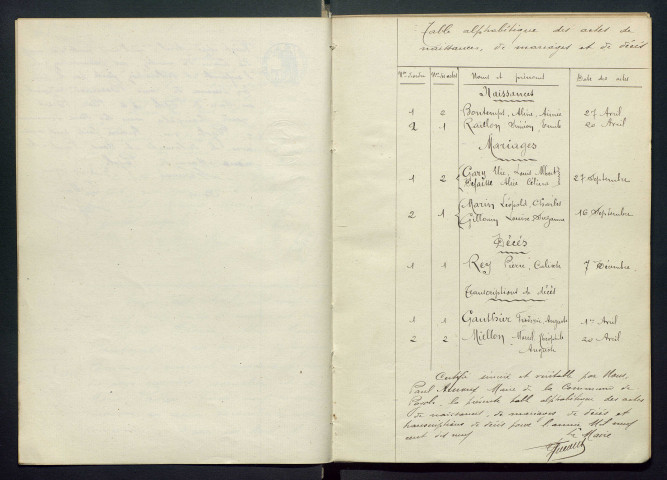 Table alphabétique des actes de
naissances, de mariages et de décès
Nos d'ordre Nos des actes Noms et prénoms Date des actes
Naissances
1 2 Bontemps, Aline, Aimée 27 Avril
2 1 Raillon Emile 20 Avril
Mariages
1 2 Gary Louis Albert
Alice 27 Septembre
2 1 Marin Léopold, Charles
Gillouin Louise Suzanne 16 Septembre
Décès
1 1 Rey Pierre, Calixte 7 Décembre
Transcriptions de décès
1 1 Gauthier Auguste 1er Avril
2 2 Miellon Marcel Théophile
Auguste 20 Avril
Certifié sincère et véritable par Nous,
Paul Maire de la Commune de
la présente table alphabétique des actes
de naissances, de mariages, de décès et
transcriptions de décès pour l'année Mil neuf
cent dix neuf
Le Maire